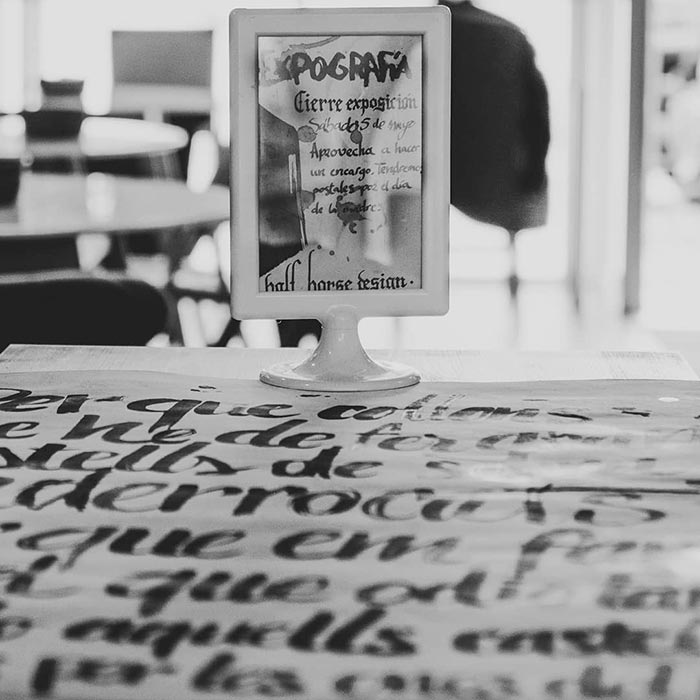 XPOGRAFÍA
Cierre exposición
Sábado 5 de mayo
Aprovecha a hacer
un encargo. Tendremos
postales por el día
de la madre
half horse design.
Per què collons
he de fer
castells de
enderrocats
què em
que odi
aquells castells
per les ones del